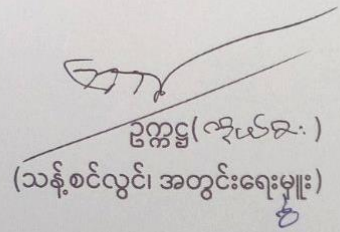 ဥက္ကဋ္ဌ(ကိုယ်စား)
(သန့်စင်လွင်၊ အတွင်းရေးမှူး)